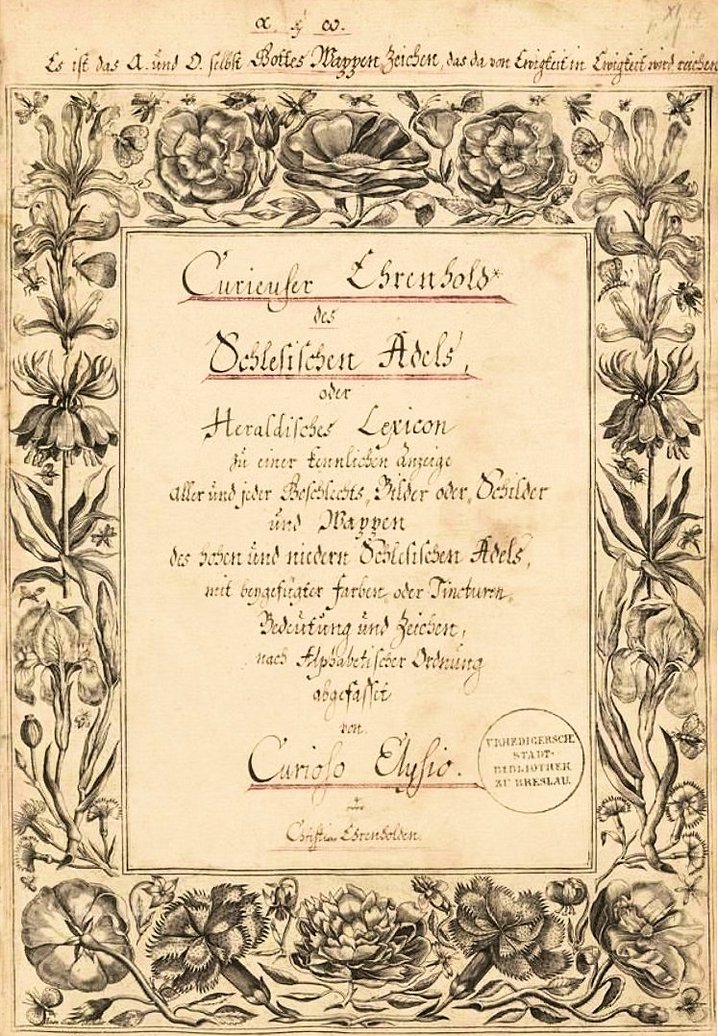 α. & ω.
Es ist das A. und O. selbst Gottes Wappen Zeichen, das da von Ewigkeit in Ewigkeit wird reichen
Curieuser Ehrenhold*
des
Schlesischen Adels,
oder
Heraldisches Lexicon
zu einer kennlichen Anzeige
aller und jeder Geschlechts, Bilder oder, Schilder
und Wappen
des hohen und niedern Schlesischen Adels,
mit beygefügter farben, oder Tincturen,
Bedeutung und Zeichen,
nach Alphabetischer Ordnung
abgefasset
von
Curioso Elysio.
Christian Ehrenholden.
V.RHEDIGERSCHE
STADT-
BIBLIOTHEK
ZU BRESLAU.